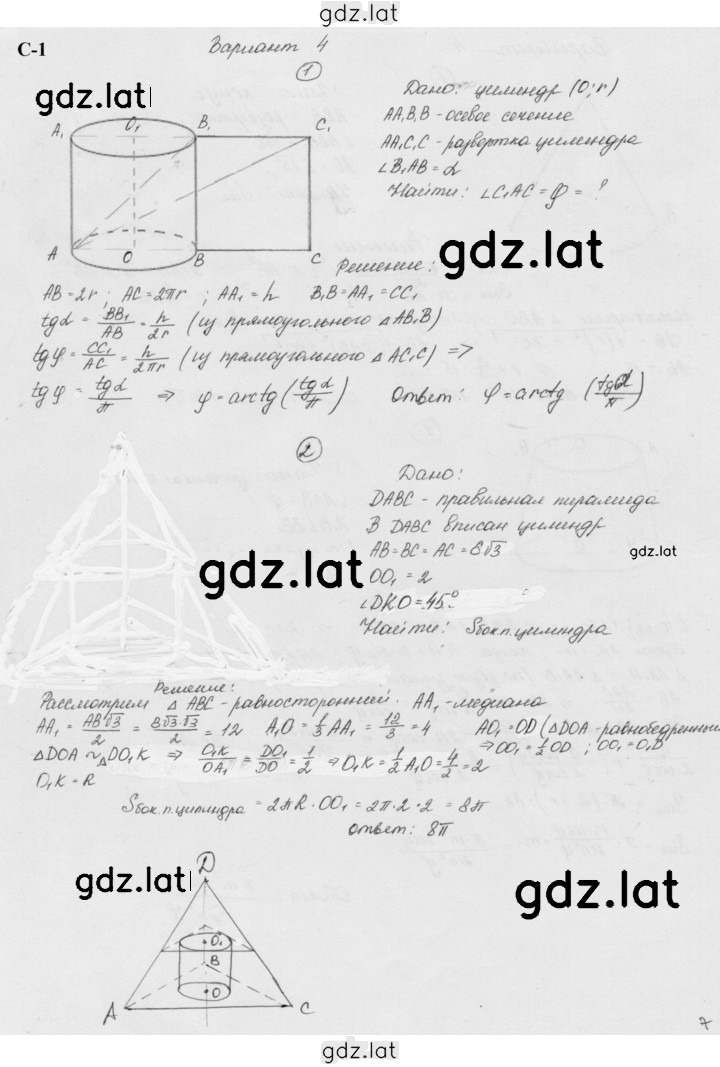 gdz.lat
С-1
Вариант 4
1
gdz.lat
Дано: цилиндр (O; r)
AA₁B₁B - осевое сечение
AA₁C₁C - развертка цилиндра
∠B₁AB = α
Найти: ∠C₁AC = φ = ?
A₁ O₁ B₁ C₁
A O B C
gdz.lat
Решение:
AB = 2r ; AC = 2πr ; AA₁ = h B₁B = AA₁ = CC₁
tgα = BB₁/AB = h/2r (из прямоугольного △AB₁B)
tgφ = CC₁/AC = h/2πr (из прямоугольного △AC₁C) =>
tgφ = tgα/π => φ = arctg (tgα/π) Ответ: φ = arctg (tgα/π)
2
Дано:
DABC - правильная пирамида
В DABC вписан цилиндр
AB = BC = AC = 8√3
gdz.lat
gdz.lat
OO₁ = 2
∠DKO = 45°
Найти: Sбок.п.цилиндра
Решение:
Рассмотрим △ABC - равносторонний. AA₁ - медиана
AA₁ = AB√3/2 = 8√3·√3/2 = 12 A₁O = 1/3 AA₁ = 12/3 = 4 AO₁ = OD (△DOA - равнобедренный
=> OO₁ = 1/2 OD ; OO₁ = O₁D
△DOA ~ △DO₁K => O₁K/OA₁ = DO₁/DO = 1/2 => O₁K = 1/2 A₁O = 4/2 = 2
O₁K = R
Sбок.п.цилиндра = 2πR · OO₁ = 2π·2·2 = 8π
Ответ: 8π
D
gdz.lat
gdz.lat
O₁
B
O
A C
7
gdz.lat